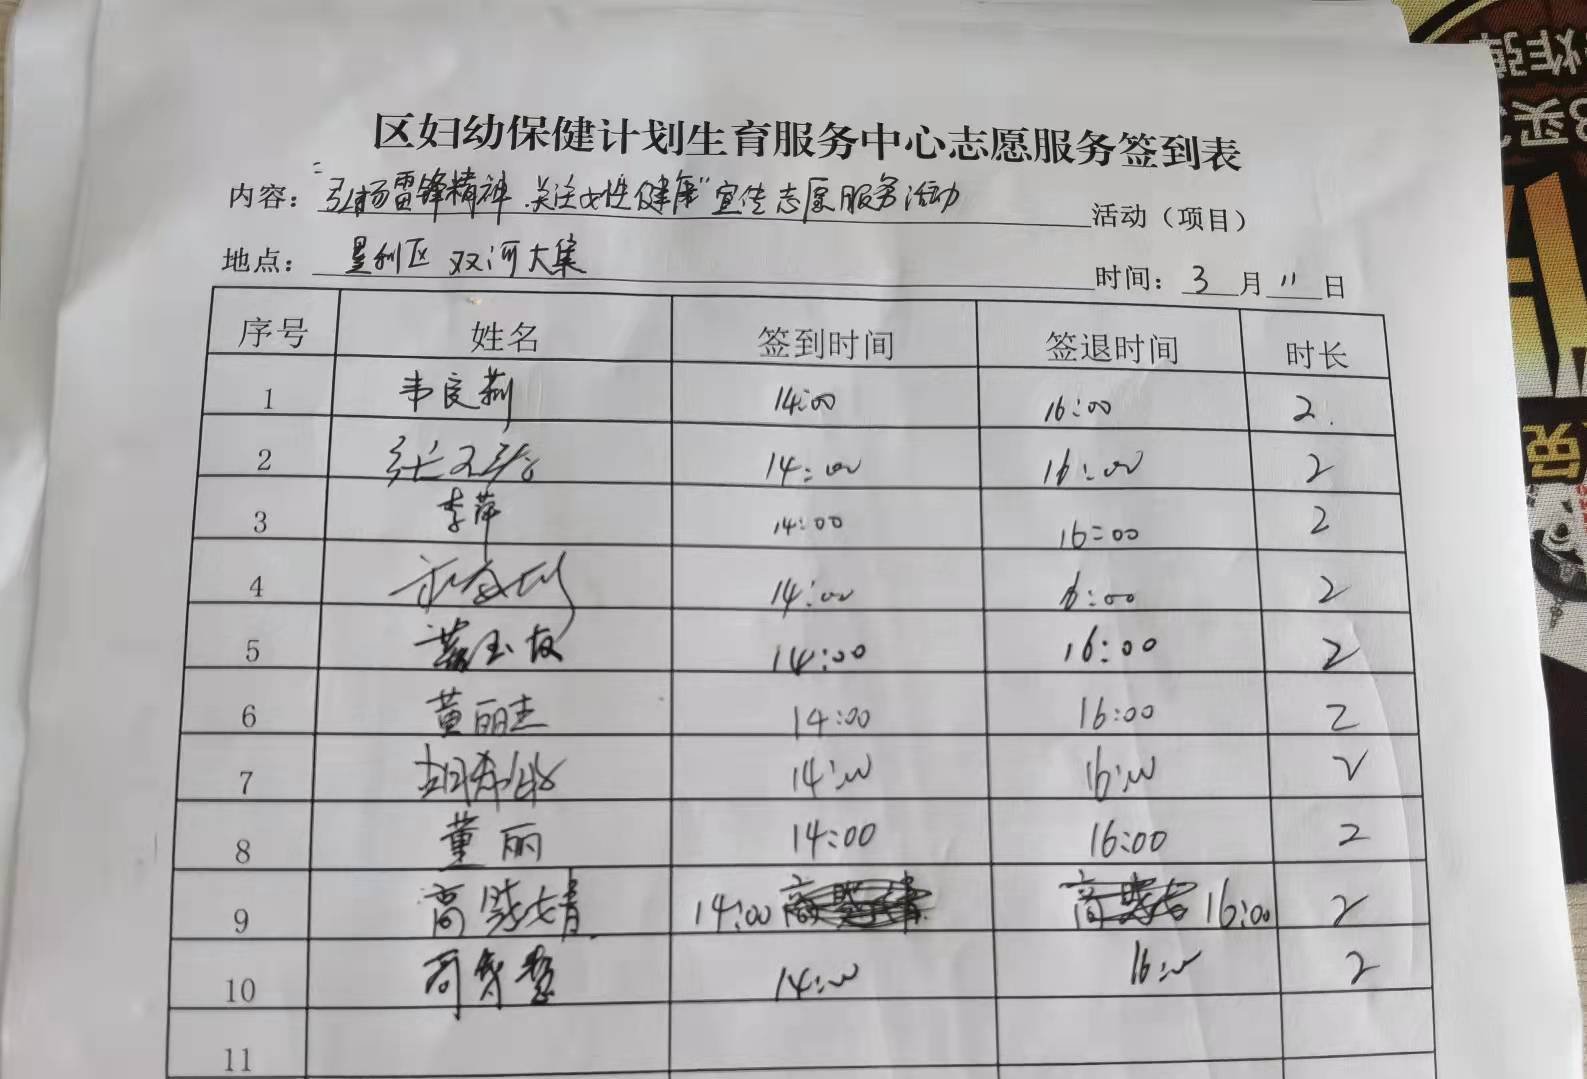 区妇幼保健计划生育服务中心志愿服务签到表
内容："弘扬雷锋精神.关注女性健康"宣传志愿服务活动 活动（项目）
地点：垦利区 双河大集 时间：3月11日
序号 姓名 签到时间 签退时间 时长
1 韦良莉 14:00 16:00 2.
2 14:00 16:00 2
3 李萍 14:00 16:00 2
4 14:00 16:00 2
5 14:00 16:00 2
6 黄丽杰 14:00 16:00 2
7 14:00 16:00 2
8 董丽 14:00 16:00 2
9 高 14:00 16:00 2
10 14:00 16:00 2
11
炸弹
买
免